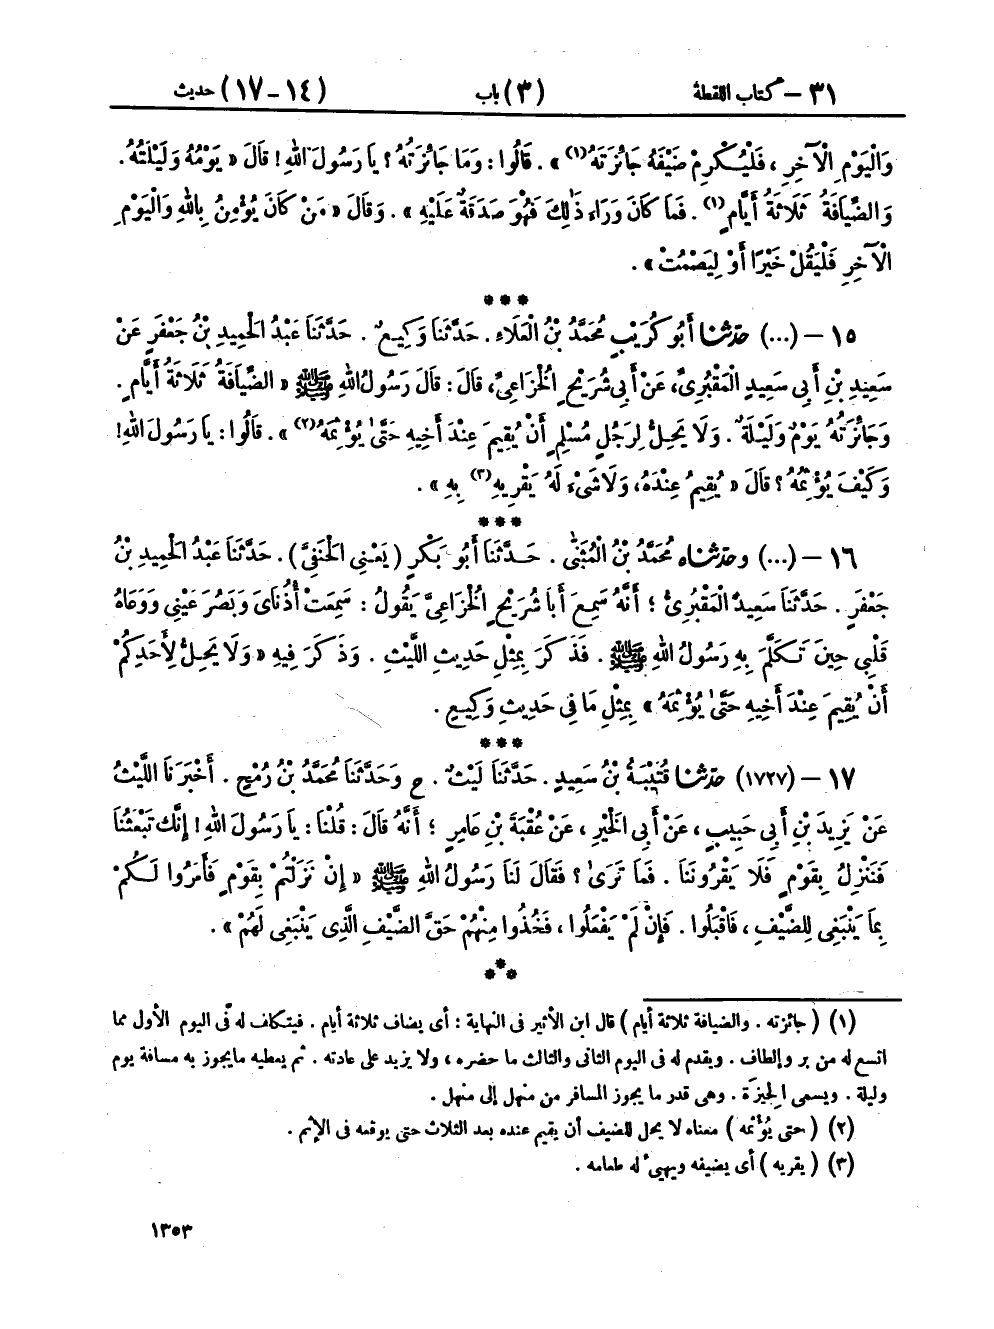 ٣١ – كتاب اللقطة (٣) باب (١٤-١٧) حديث
وَالْيَوْمِ الْآخِرِ ، فَلْيُكْرِمْ ضَيْفَهُ جَائِزَتَهُ(١) » . قَالُوا : وَمَا جَائِزَتُهُ ؟ يَا رَسُولَ اللهِ ! قَالَ « يَوْمُهُ وَلَيْلَتُهُ .
وَالضِّيَافَةُ ثَلَاثَةُ أَيَّامٍ(١) . فَمَا كَانَ وَرَاءَ ذَٰلِكَ فَهُوَ صَدَقَةٌ عَلَيْهِ » . وَقَالَ « مَنْ كَانَ يُؤْمِنُ بِاللهِ وَالْيَوْمِ
الْآخِرِ فَلْيَقُلْ خَيْرًا أَوْ لِيَصْمُتْ » .
***
١٥ – (...) حَدَّثَنَا أَبُو كُرَيْبٍ مُحَمَّدُ بْنُ الْعَلَاءِ . حَدَّثَنَا وَكِيعٌ . حَدَّثَنَا عَبْدُ الْحَمِيدِ بْنُ جَعْفَرٍ عَنْ
سَعِيدِ بْنِ أَبِي سَعِيدٍ الْمَقْبُرِيِّ، عَنْ أَبِي شُرَيْحٍ الْخُزَاعِيِّ، قَالَ : قَالَ رَسُولُ اللهِ ﷺ « الضِّيَافَةُ ثَلَاثَةُ أَيَّامٍ .
وَجَائِزَتُهُ يَوْمٌ وَلَيْلَةٌ . وَلَا يَحِلُّ لِرَجُلٍ مُسْلِمٍ أَنْ يُقِيمَ عِنْدَ أَخِيهِ حَتَّىٰ يُؤْثِمَهُ(٢) » . قَالُوا : يَا رَسُولَ اللهِ!
وَكَيْفَ يُؤْثِمُهُ ؟ قَالَ « يُقِيمُ عِنْدَهُ، وَلَا شَيْءَ لَهُ يَقْرِيهِ(٣) بِهِ » .
***
١٦ – (...) وحَدَّثَنَاه مُحَمَّدُ بْنُ الْمُثَنَّىٰ . حَدَّثَنَا أَبُو بَكْرٍ ( يَعْنِي الْحَنَفِيَّ ) . حَدَّثَنَا عَبْدُ الْحَمِيدِ بْنُ
جَعْفَرٍ . حَدَّثَنَا سَعِيدٌ الْمَقْبُرِيُّ ؛ أَنَّهُ سَمِعَ أَبَا شُرَيْحٍ الْخُزَاعِيَّ يَقُولُ : سَمِعَتْ أُذُنَايَ وَبَصُرَ عَيْنِي وَوَعَاهُ
قَلْبِي حِينَ تَكَلَّمَ بِهِ رَسُولُ اللهِ ﷺ . فَذَكَرَ بِمِثْلِ حَدِيثِ اللَّيْثِ . وَذَكَرَ فِيهِ « وَلَا يَحِلُّ لِأَحَدِكُمْ
أَنْ يُقِيمَ عِنْدَ أَخِيهِ حَتَّىٰ يُؤْثِمَهُ » بِمِثْلِ مَا فِي حَدِيثِ وَكِيعٍ .
***
١٧ – (١٧٢٧) حَدَّثَنَا قُتَيْبَةُ بْنُ سَعِيدٍ . حَدَّثَنَا لَيْثٌ . ح وَحَدَّثَنَا مُحَمَّدُ بْنُ رُمْحٍ . أَخْبَرَنَا اللَّيْثُ
عَنْ يَزِيدَ بْنِ أَبِي حَبِيبٍ، عَنْ أَبِي الْخَيْرِ، عَنْ عُقْبَةَ بْنِ عَامِرٍ ؛ أَنَّهُ قَالَ : قُلْنَا : يَا رَسُولَ اللهِ ! إِنَّكَ تَبْعَثُنَا
فَنَنْزِلُ بِقَوْمٍ فَلَا يَقْرُونَنَا . فَمَا تَرَىٰ ؟ فَقَالَ لَنَا رَسُولُ اللهِ ﷺ « إِنْ نَزَلْتُمْ بِقَوْمٍ فَأَمَرُوا لَكُمْ
بِمَا يَنْبَغِي لِلضَّيْفِ ، فَاقْبَلُوا . فَإِنْ لَمْ يَفْعَلُوا ، فَخُذُوا مِنْهُمْ حَقَّ الضَّيْفِ الَّذِي يَنْبَغِي لَهُمْ » .
***
(١) ( جائزته . والضيافة ثلاثة أيام ) قال ابن الأثير فى النهاية : أى يضاف ثلاثة أيام . فيتكلف له فى اليوم الأول مما
اتسع له من بر وإلطاف . ويقدم له فى اليوم الثانى والثالث ما حضره ، ولا يزيد على عادته . ثم يعطيه ما يجوز به مسافة يوم
وليلة . ويسمى الجِيزَة . وهى قدر ما يجوز المسافر من منهل إلى منهل .
(٢) ( حتى يُؤْثمه ) معناه لا يحل للضيف أن يقيم عنده بعد الثلاث حتى يوقعه فى الإثم .
(٣) ( يقريه ) أى يضيفه ويهيئ له طعامه .
١٣٥٣